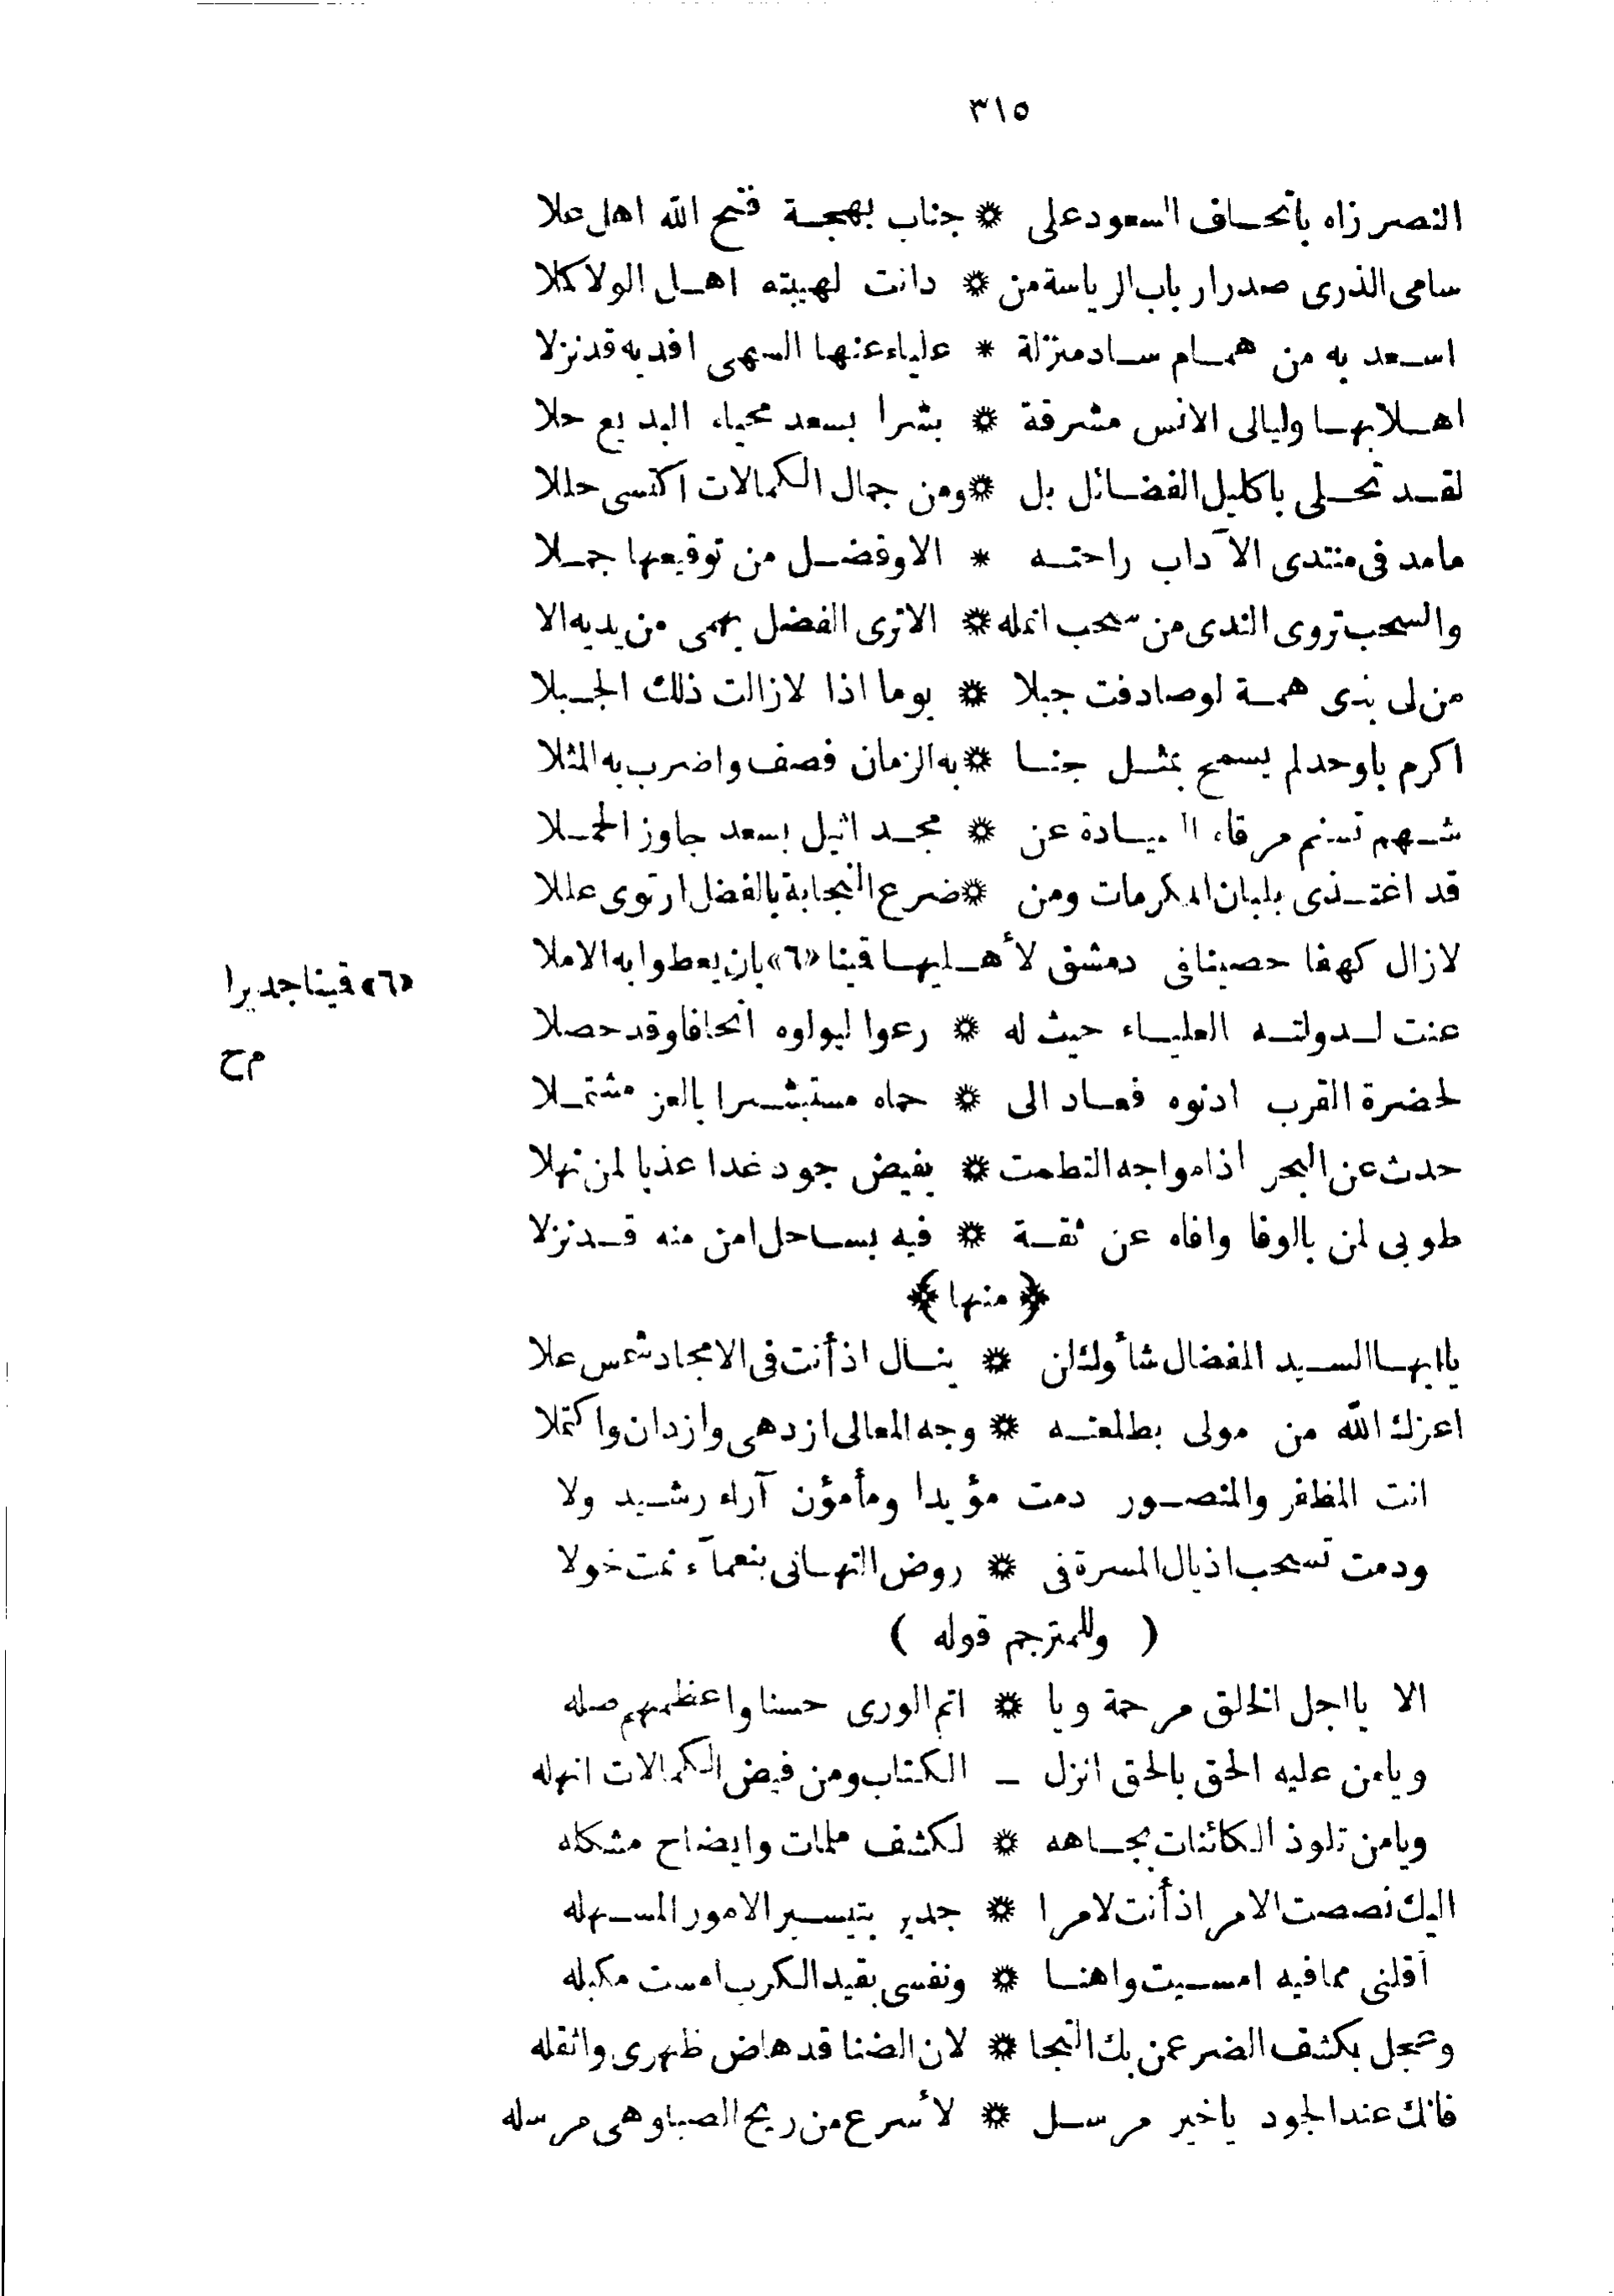 ٣١٥
النصر زاه باتحاف السعود على * جناب بهجة فتح الله اهل علا
سامى الذرى صدر ارباب الرياسة من * دانت لهيبته اهل الولا كملا
اسعد به من همام ساد منزلة * علياء عنها السهى افديه قد نزلا
اهلا بها وليالى الانس مشرقة * بشرا بسعد محياه البديع حلا
لقد تحلى باكليل الفضائل بل * ومن جمال الكمالات اكتسى حللا
مامد فى منتدى الآداب راحته * الاوفضل من توقيعها جملا
والسحب تروى الندى من سحب انمله * الاترى الفضل يهمى من يديه الا
من لى بندى همة لوصادفت جبلا * يوما اذا لازالت ذلك الجبلا
اكرم باوحد لم يسمح بمثل جنا * به الزمان فصف واضرب به المثلا
شهم تسنم مرقاه السيادة عن * مجد اثيل بسعد جاوز الحملا
قد اغتذى بلبان المكرمات ومن * ضرع النجابة بالفضل ارتوى عللا
لازال كهفا حصينا فى دمشق لأهليها قينا «٦» بان يعطوا به الاملا
«٦» قينا جديرا
م ح
عنت لدولته العلياء حيث له * رعوا ليولوه اتحافا وقد حصلا
لحضرة القرب ادنوه فعاد الى * حماه مستبشرا بالعز مشتملا
حدث عن البحر اذا مواجه التطمت * بفيض جود غدا عذبا لمن نهلا
طوبى لمن بالوفا وافاه عن ثقة * فيه بساحل امن منه قد نزلا
﴿ منها ﴾
يا ايها السيد المفضال شأوك لن * ينال اذ أنت فى الامجاد شمس علا
اعزك الله من مولى بطلعته * وجه المعالى ازدهى وازدان واكتملا
انت المظفر والمنصور دمت مؤيدا ومأمون آراء رشيد ولا
ودمت تسحب اذيال المسرة فى * روض التهانى بنعماء نمت خولا
( وللمترجم قوله )
الا يا اجل الخلق مرحمة ويا * اتم الورى حسنا واعظمهم صله
ويا من عليه الحق بالحق انزل _ الكتاب ومن فيض الكمالات انهله
ويامن تلوذ الكائنات بجاهه * لكشف ملمات وايضاح مشكله
اليك نصصت الامر اذ أنت لامرا * جدير بتيسير الامور المسهله
أقلنى مما فيه امسيت واهنا * ونفسى بقيد الكرب امست مكبله
وعجل بكشف الضر عمن بك التجا * لان الضنا قد هاض ظهرى واثقله
فانك عند الجود ياخير مرسل * لأسرع من ريح الصبا وهى مرسله